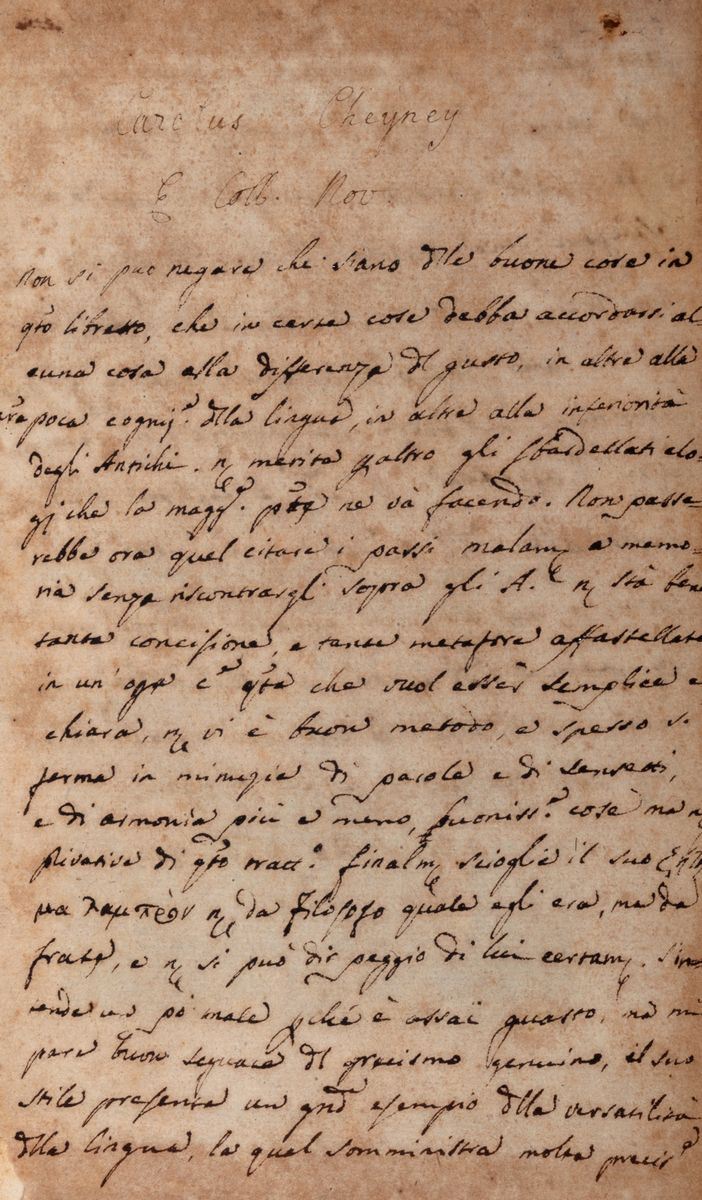 Carolus Cheyney
E Coll. Nov.
Non si può negare che siano dlle buone cose in
qto libretto, che in certe cose debba accordarsi al-
cuna cosa alla differenza dl gusto, in altre alla
poca cogniz.e dlla lingua, in altre alla inferiorità
degli Antichi. merita paltro gli sbardellati elo-
gj che la magg.e pte ne và facendo. Non passe-
rebbe ora quel citare i passi malam a memo-
ria senza riscontrargli sopra gli A. stà bene
tanta concisione, e tante metafore affastellate
in un' opa c.e qta che vuol esser semplice e
chiara, vi è buon metodo, e spesso si
ferma in minuzie di parole e di sensetti,
e di armonia più e meno, buoniss.e cose ma
di qto tratt.o finalm scioglie il suo
μα λαμπρὸν da Filosofo quale egli era, ma da
frate, e si può dir peggio di lui certam. S'in-
tende un pò male pché è assai guasto, ma mi
pare buon seguace dl grecismo genuino, il suo
stile presenta un gnd esempio dlla versatilità
dlla lingua, la qual somministra molta